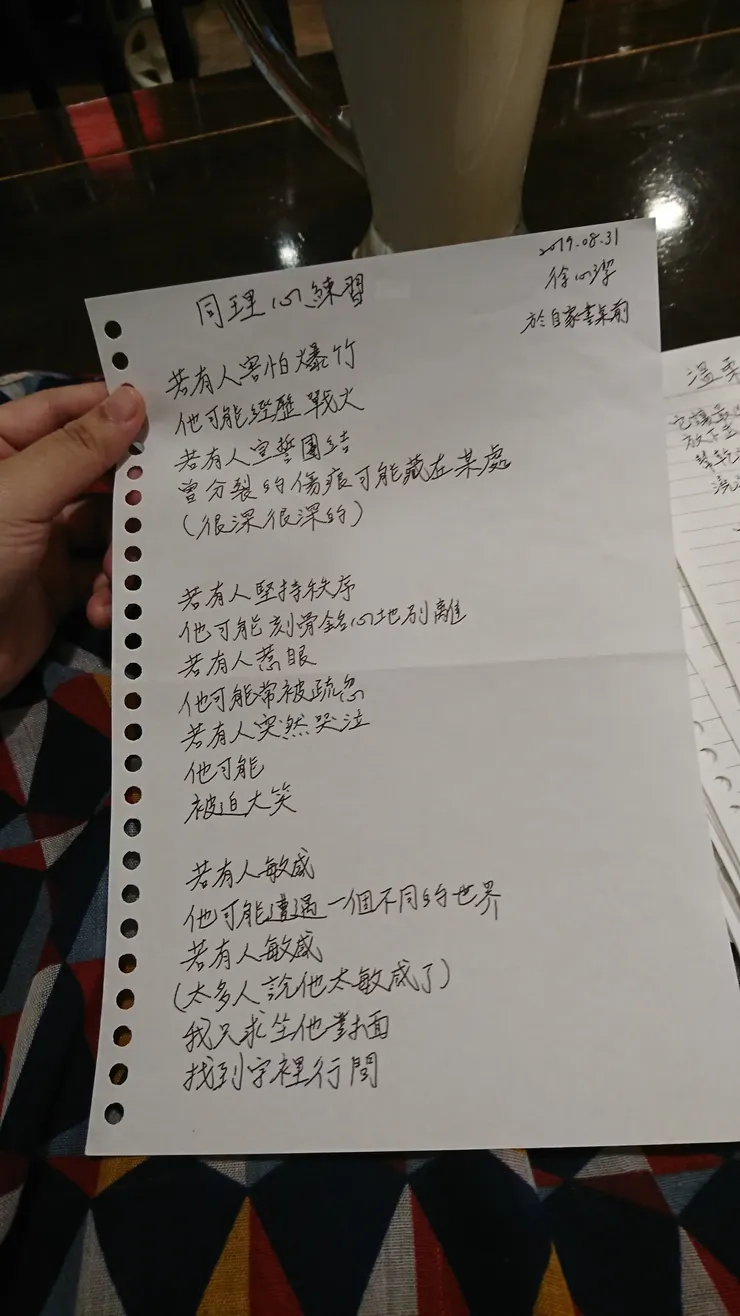 2019.08.31
徐心潔
於自家書桌前
同理心練習
若有人害怕爆竹
他可能經歷戰火
若有人宣誓團結
曾分裂的傷痕可能藏在某處
（很深很深的）
若有人堅持秩序
他可能刻骨銘心地別離
若有人惹眼
他可能常被疏忽
若有人突然哭泣
他可能
被迫大笑
若有人敏感
他可能遭遇一個不同的世界
若有人敏感
（太多人說他太敏感了）
我只求坐他對面
找到字裡行間
溫柔
放下